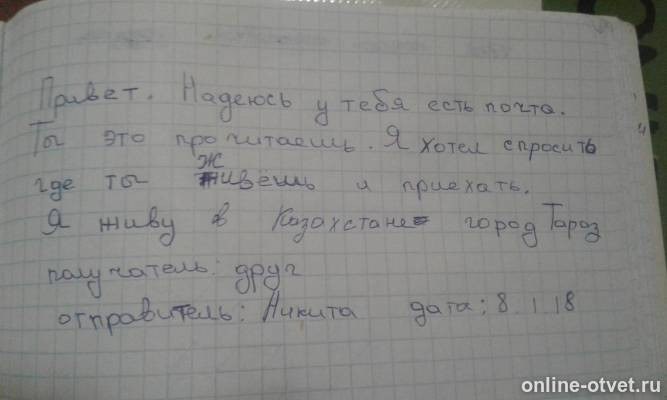 Привет. Надеюсь у тебя есть почта.
Ты это прочитаешь. Я хотел спросить
где ты живёшь и приехать.
Я живу в Казахстане город Тараз
получатель: друг
отправитель: Никита дата: 8.1.18
online-otvet.ru